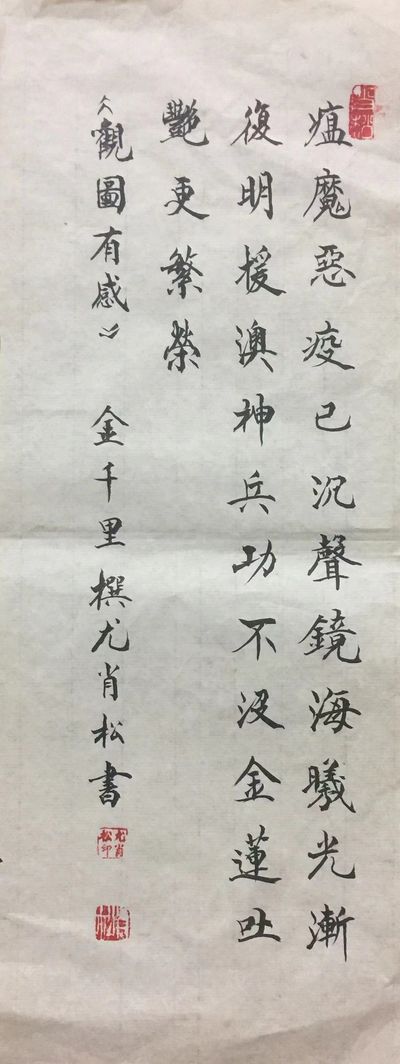 瘟魔惡疫已沉聲鏡海曦光漸
復明援澳神兵功不没金蓮吐
艷更繁榮
《觀圖有感》 金千里撰尤肖松書
尤肖松印